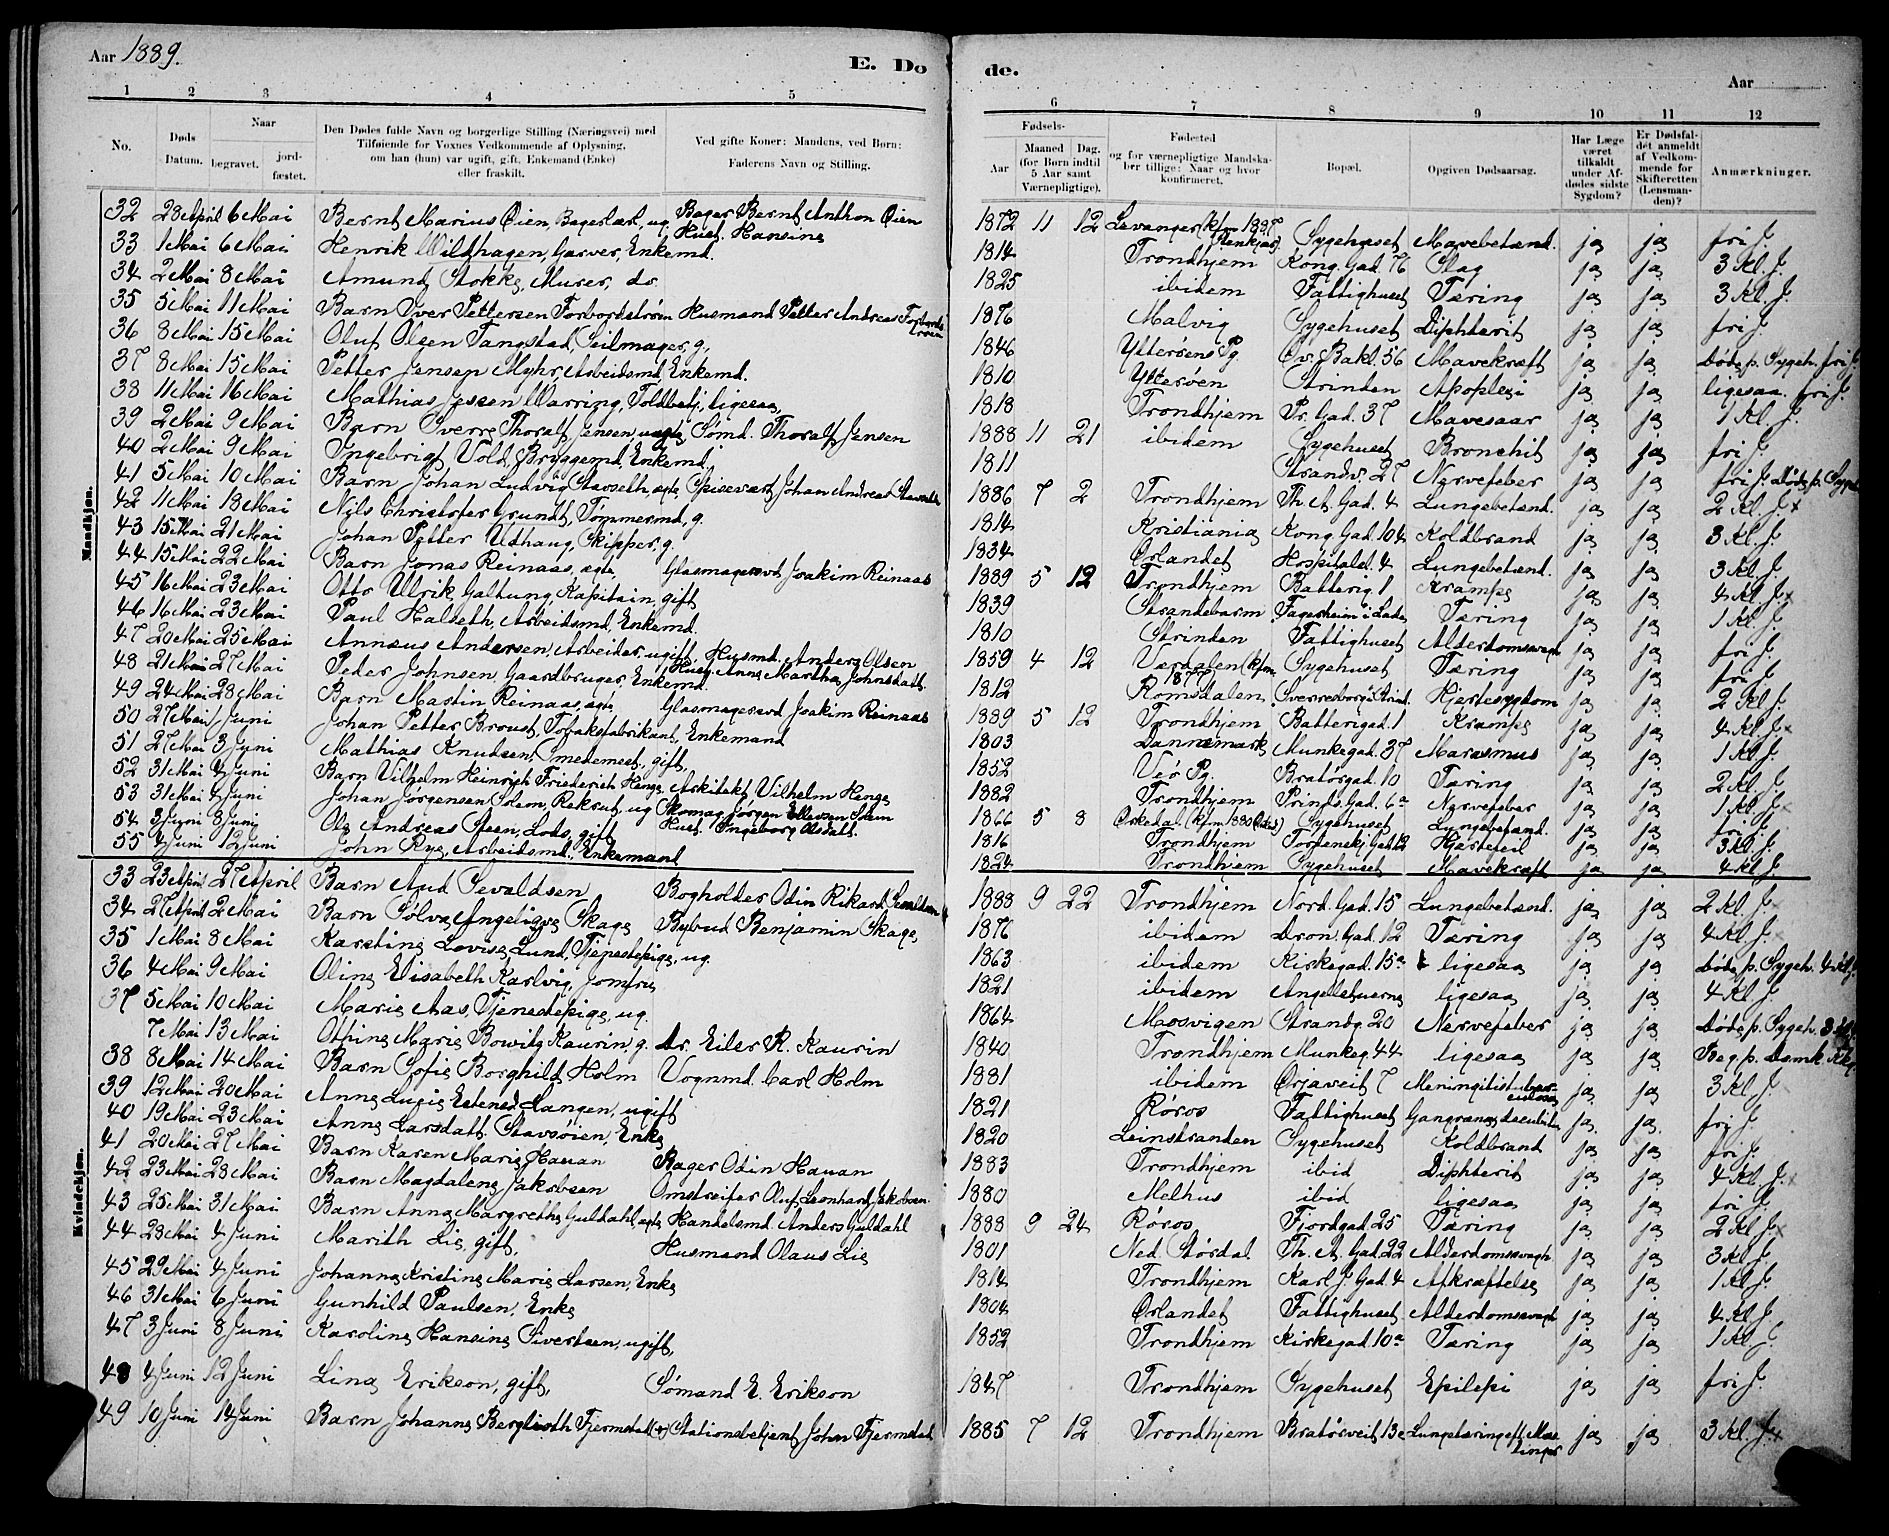 Aar 1889.
E. Dø
de.
Aar
1 2 3 4 5
6 7 8 9 10 11 12
No.
Døds Datum.
Naar
begravet.
jord-fæstet.
Den Dødes fulde Navn og borgerlige Stilling (Næringsvei) med Tilføiende for Voxnes Vedkommende af Oplysning, om han (hun) var ugift, gift, Enkemand (Enke) eller fraskilt.
Ved gifte Koner: Mandens, ved Børn: Faderens Navn og Stilling.
Fødsels-
Aar
Maaned Dag. (for Børn indtil 5 Aar samt Værnepligtige).
Fødested og for værnepligtige Mandskaber tillige: Naar og hvor konfirmeret.
Bopæl.
Opgiven Dødsaarsag.
Har Læge været tilkaldt under Afdødes sidste Sygdom?
Er Dødsfaldet anmeldt af Vedkommende for Skifteretten (Lensmanden)?
Anmærkninger.
Mandkjøn.
32 28 April 6 Mai Bernt Marius Øien, Bagerlært, ug. Bager Bernt Anthon Øien Hust. Hansine 1872 11 12 Levanger (kfm 1887 Stenkjær) Sygehuset Mavebetænd. ja ja fri J.
33 1 Mai 6 Mai Henrik Wildhagen, Garver, Enkemd. 1814 Trondhjem Kong. Gad. 76 Slag ja ja 3 Kl. J.
34 2 Mai 8 Mai Amund Stokke, Murer, do. 1825 ibidem Fattighuset Tæring ja ja 3 Kl. J.
35 5 Mai 11 Mai Barn Iver Pettersen Forbordstrøen Husmand Petter Andreas Forbordstrøen 1876 Malvig Sygehuset Diphterit ja ja fri J.
36 8 Mai 15 Mai Oluf Olsen Tangstad, Seilmager, g., 1846 Ytterøens Pg. Øv. Bakl. 56 Mavekræft ja ja Døde p. Sygeh. fri J.
37 8 Mai 15 Mai Petter Jensen Myhr, Arbeidsmd, Enkemd. 1810 Ytterøen Strinden Apoplexi ja ja ligesaa. fri J.
38 11 Mai 16 Mai Mathias Jessen Warring, Toldbetj, ligesaa, 1818 Trondhjem Pr. Gad. 37 Mavesaar ja ja 1 Kl. J.
39 2 Mai 9 Mai Barn Sverre Thoralf Jensen uægte Sømd. Thoralf Jensen 1888 11 21 ibidem Sygehuset Bronchit ja ja fri J.
40 2 Mai 9 Mai Ingebrigt Vold, Bryggemd, Enkemd, 1811 Strandv. 27 Nervefeber ja ja fri J. Døde p. Sygeh.
41 5 Mai 10 Mai Barn Johan Ludvig Stavseth, ægte, Spisevært Johan Andreas Stavseth 1886 7 2 Trondhjem Th. A. Gad. 4 Lungebetænd. ja ja 2 Kl. J.
42 11 Mai 18 Mai Nils Christofer Grundt, Tømmermd, g. 1814 Kristiania Kong. Gad 104 Koldbrand ja ja 3 Kl. J.
43 15 Mai 21 Mai Johan Petter Udhaug, Skipper, g. 1834 Ørlandet Hospitalsl. 4 Lungebetænd. ja ja 3 Kl. J.
44 15 Mai 22 Mai Barn Jonas Reinaas, ægte, Glasmagersvd Joakim Reinaas 1889 5 12 Trondhjem Batterig. 1 Krampe ja ja 4 Kl J.
45 16 Mai 23 Mai Otto Ulrik Galtung, Kapitain, gift 1839 Strandebarm Fagerheim i Lade Tæring ja ja 1 Kl. J.
46 16 Mai 23 Mai Paul Halseth, Arbeidsmd, Enkemd. 1810 Strinden Fattighuset Alderdomssvagh ja ja fri J.
47 20 Mai 25 Mai Annæus Andersen, Arbeider, ugift, Husmd. Anders Olsen Hust. Anne Martha Johnsdatt. 1859 4 12 Værdalen (kfm 1877 Sygehuset Tæring ja ja fri J.
48 21 Mai 27 Mai Peder Johnsen, Gaardbruger, Enkemd. 1812 Romsdalen Sverresborg i Strind. Hjertesygdom ja ja 2 Kl. J.
49 24 Mai 28 Mai Barn Martin Reinaas, ægte, Glasmagersvd Joakim Reinaas 1889 5 12 Trondhjem Batterigad. 1 Krampe ja ja 4 Kl. J.
50 27 Mai 1 Juni Johan Petter Broust, Tobaksfabrikant, Enkemand 1803 Dannemark Munkegad. 37 Marasmus ja ja 1 Kl. J.
51 27 Mai 3 Juni Mathias Knudsen, Smedemest., gift, 1852 Veø Pg. Bratørgad. 10 Tæring ja ja 2 Kl. J.
52 31 Mai 4 Juni Barn Vilhelm Heinrich Friederich Henge, Arkitekt Vilhelm Henge 1882 Trondhjem Prinds. Gad. 6a Nervefeber ja ja 1 Kl. J.
53 31 Mai 4 Juni Johan Jørgensen Solem, Rekrut, ug Skomag. Jørgen Ellevsen Solem Hust. Ingeborg Olsdatt. 1866 5 8 Ørkedal (kfm 1880 Sygehuset Lungebetænd. ja ja fri J.
54 3 Juni 8 Juni Ole Andreas Steen, Lods, gift 1816 Trondhjem Hjertefeil ja ja 3 Kl. J.
55 4 Juni 12 Juni John Rye, Arbeidsmd., Enkemand 1824 Trondhjem Sygehuset Mavekræft ja ja 4 Kl J.
Kvindekjøn.
33 23 April 27 April Barn Aud Sevaldsen Bogholder Odin Rikard Sevaldsen 1888 9 22 Trondhjem Nord. Gad. 15 Lungebetænd. ja ja 2 Kl. J.
34 27 April 2 Mai Barn Sølva Angelique Skage Bybud Benjamin Skage, 1876 ibidem Dron. Gad. 12 Tæring ja ja 4 Kl. J.
35 1 Mai 8 Mai Karstine Lovise Lund, Tjenestepige, ug. 1863 ibidem Kirkegad. 15a ligesaa ja ja Døde p. Sygeh. 4 Kl J.
36 4 Mai 9 Mai Oline Elisabeth Karlvig, Jomfru 1821 ibidem Angelltuerne ligesaa ja ja 4 Kl. J.
37 5 Mai 10 Mai Marie Aas, Tjenestepige, ug. 1864 Mosvigen Strandg. 20 Nervefeber ja ja Døde p. Sygeh. 3 Kl
7 Mai 13 Mai Othine Marie Bowitz Kaurin, g. Dr. Eiler R. Kaurin 1840 Trondhjem Munkeg. 44 ligesaa ja ja Beg. p. Domk. Kkg
38 8 Mai 14 Mai Barn Sofie Borghild Holm Vognmd. Carl Holm 1881 ibidem Ørjaveit 7 Meningitis tuberculosa ja ja 3 Kl. J.
39 12 Mai 20 Mai Anne Lucie Estensd Langen, ugift 1821 Røros Fattighuset Gangræna ja ja fri J.
40 19 Mai 23 Mai Anne Larsdatt. Stavsøien, Enke 1820 Leinstranden Sygehuset Koldbrand ja ja fri J.
41 20 Mai 27 Mai Barn Karen Marie Hauan Bager Odin Hauan 1883 Trondhjem ibid Diphterit ja ja 4 Kl. J.
42 23 Mai 28 Mai Barn Magdalene Jakobsen Omstreifer Oluf Leonhard Jakobsen 1880 Melhus ibid ligesaa ja ja fri J.
43 25 Mai 31 Mai Barn Anne Margrethe Guldahl, ægte Handelsmd. Anders Guldahl 1888 9 24 Røros Fjordgad. 25 Tæring ja ja 2 Kl J.
44 28 Mai 4 Juni Marith Lie, gift, Husmand Olaus Lie 1801 Ned. Størdal Th. A. Gad. 22 Alderdomssvagh. ja ja 3 Kl. J.
45 29 Mai 4 Juni Johanne Kristine Marie Larsen, Enke 1814 Trondhjem Karl J. Gad. 4 Afkræftelse ja ja 1 Kl. J.
46 31 Mai 6 Juni Gunhild Paulsen, Enke 1804 Ørlandet Fattighuset Alderdomssvagh ja ja 4 Kl. J.
47 3 Juni 8 Juni Karoline Hansine Sivertsen, ugift, 1852 Trondhjem Kirkegad. 10a Tæring ja ja 1 Kl. J.
48 4 Juni 12 Juni Lina Erikson, gift, Sømand E. Erikson 1847 Trondhjem Sygehuset Epilepi ja ja fri J.
49 10 Juni 14 Juni Barn Johanne Bergljoth Fjermstad Stationsbetjent John Fjermstad 1885 7 12 Trondhjem Bratørveit 13 Lungetæring eft. Mæslinger ja ja 3 Kl. J.